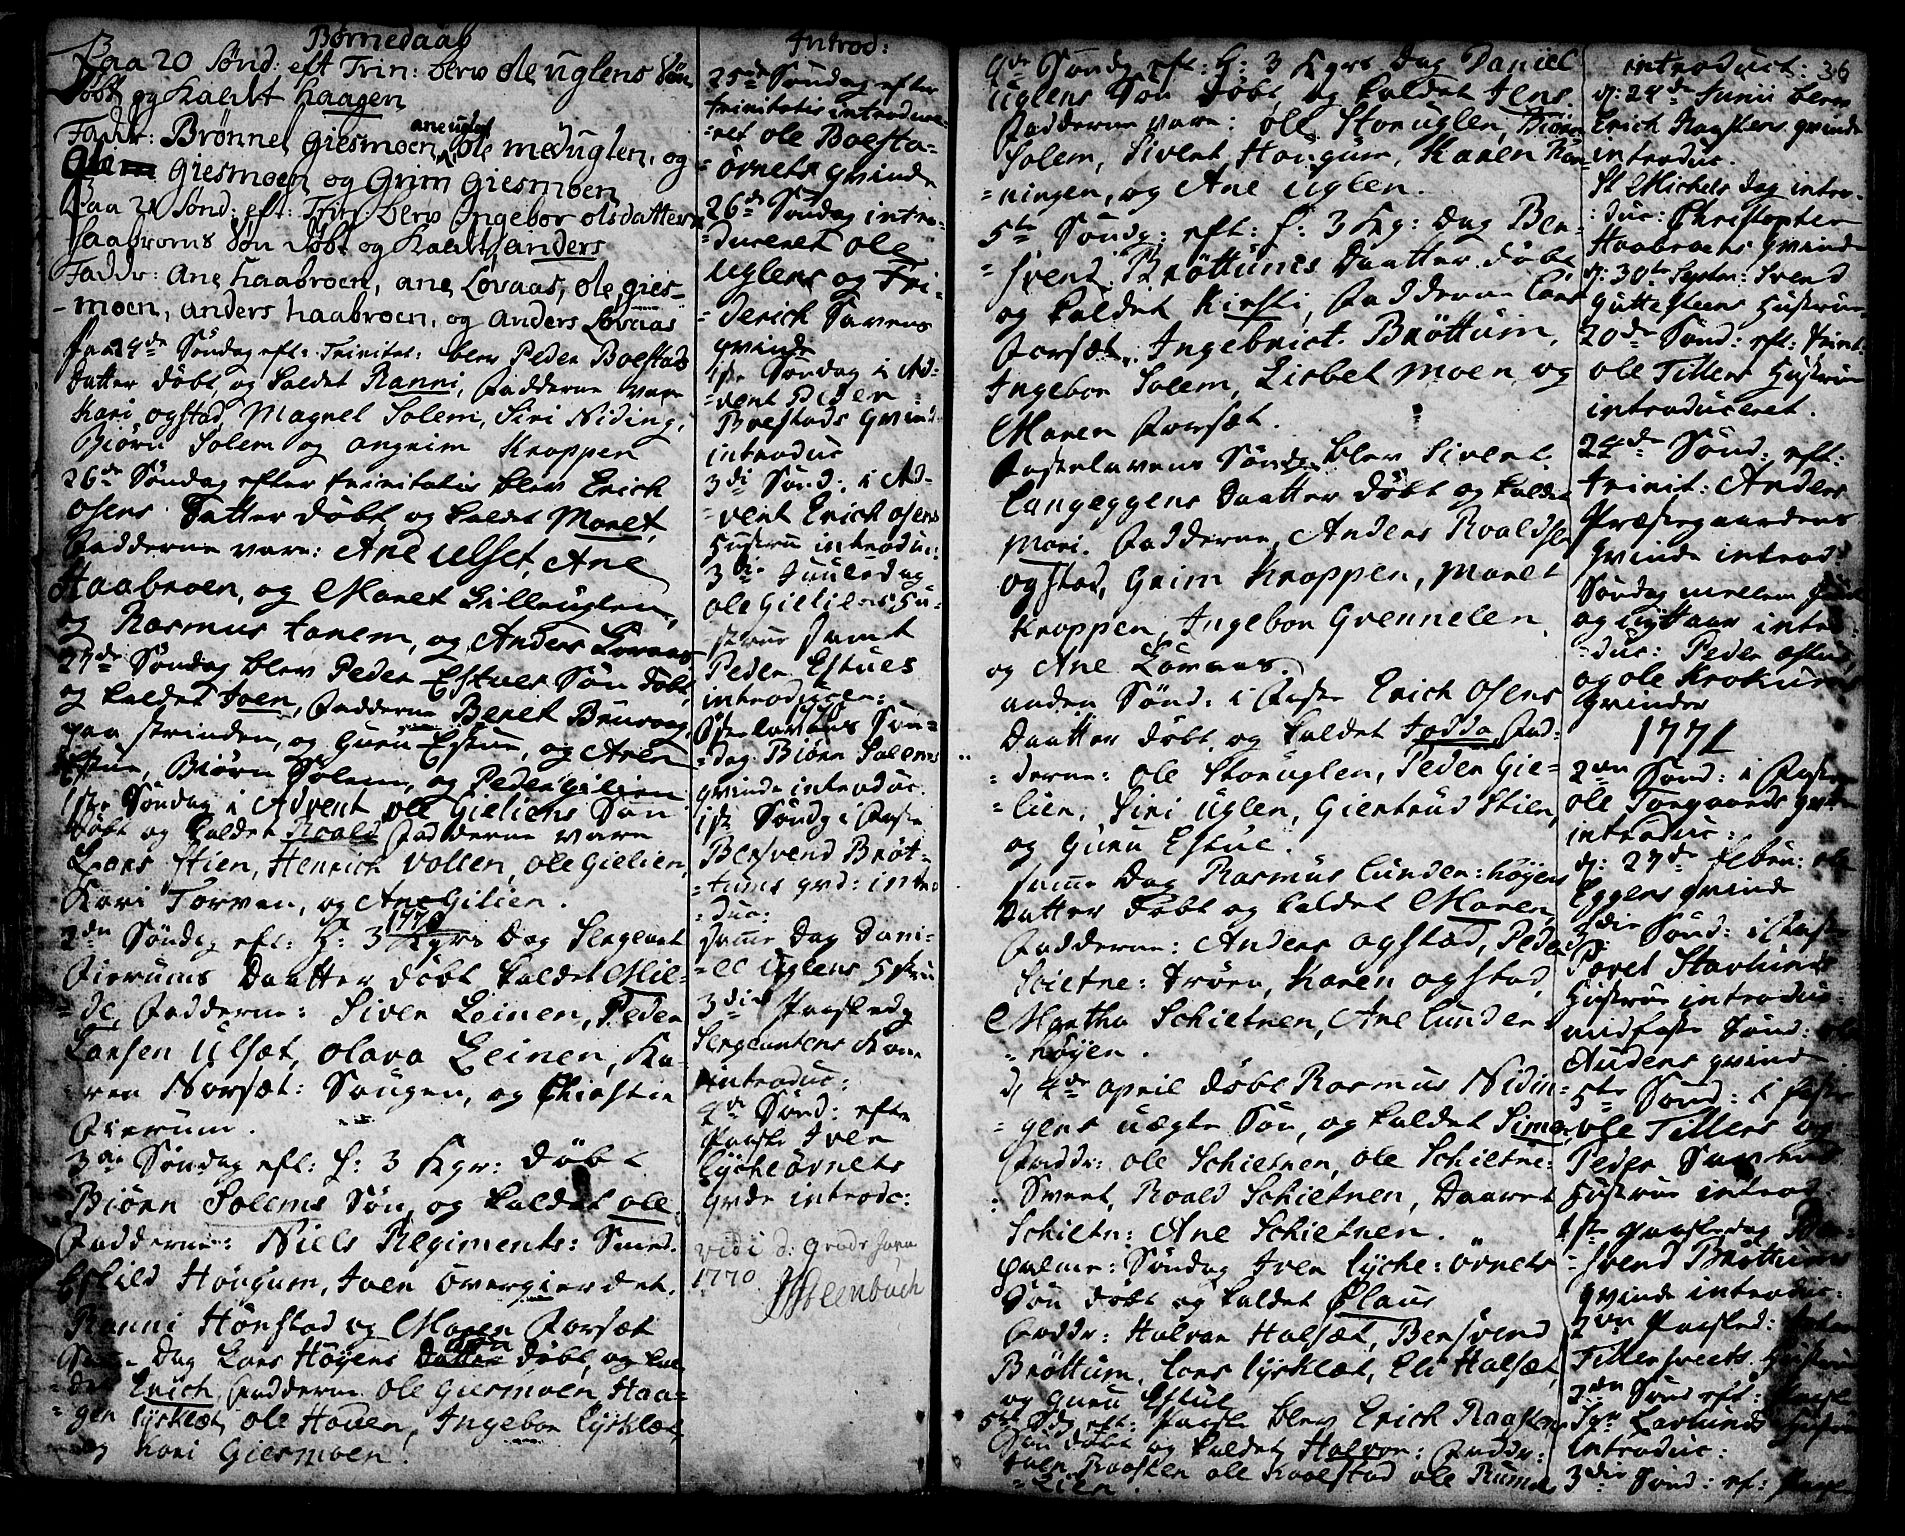 Børnedaab
Paa 20 Sønd: eft Trin: blew ole uglens Søn
døbt og Kaldt haagen
Faddr: Brønnel giesmoen, ane uglen ole meduglen, og
giesmoen og Grim giesmoen
Paa 21 Sønd: eft: Trin: blew Ingebor olsdatter
haabroens Søn døbt og Kaldt, anders
Faddr: ane haabroen, ane Lovaas, ole gies-
-moen, anders haabroen, og anders Lovaas
paa 24de Søndag eft: Trinitat: blev Peder Boestads
datter døbt og kaldet Ranni, Fadderne vare
Kari ogstad, Magnel Solem, Siri Niding,
Biørn Solem og angrim Kroppen
26de Søndag efter trinitatis blev Erich
osens Datter døbt og kaldet Maret,
Fadderne vare: Ane Ulset, Ane
Haabroen, og Maret Lilleuglen,
og Rasmus tanem, og Anders Lovaas
27de Søndag blev Peder Estues Søn døbt,
og kaldet Joen, Fadderne Beret Bruraag
paa strinden, og Guru Estue, og Aren
Estue, Biørn Solem, og Peder Gilien
1ste Søndag i Advent ole Gieliens Søn
døbt og kaldet Roald Fadderne vare
Lars Stien, Henrich Vollen, ole Gielien,
Kari Torven, og Ane Gilien.
1770
2den Søndg eft: H: 3 Kgrs Dag Sergeant
Fierums Daatter døbt kaldet Mil-
-de, Fadderne: Siver Leinen, Peder
Larsen Ulsæt, olava Leinen, Ka-
-ren Norsæt: Saugen, og Chirstin
Fierum.
3die Søndag eft: H: 3 Kgr: døbt
Biørn Solems Søn, og kaldet ole.
Fadderne: Niels Regiments: Smed.
Eskild Hougum, Iver overgierdet.
Ranni Hønstad og Maren Forsæt
Samme Dag Lars Høyens Søn døbt, og kal-
det Erich, Fadderne ole Giesmoen, Haa-
-gen lysklæt, ole Hoven, Ingebor lysklæt,
og Kari Giesmoen.
Introd:
25de Søndag efter
trinitatis introduce-
-ret ole Boesta-
-ørnets qvinde
26de Søndag intro-
-duceret ole
Uglens og Fri-
-derich Tavens
qvinde
1ste Søndag i Ad-
-vent Peder
Boestads qvind
introduc
3di Sønd: i Ad-
-vent Erich osens
Hustru introduc:
3die Juuledag
ole Gieliens Hu-
-strue samt
Peder Estues
introducer:
Fastelavens Søn-
-dag Biørn Solems
qvinde introduc.
1ste Søndg i Faste
Bersvend Brøt-
-tums qvd: intro
-duc:
samme Dag Dani-
-el Uglens Hustru
3die Paaskedg
Sergeantens Kone
introduc:
4de Sønd: efte
Paaske Iver
lycheørnets
qvde introdc:
vidi
1770
JSteenbuch
4de Søndg eft: H: 3 Kgrs Dag Daniel
Uglens Søn døbt, og kaldet Jens.
Fadderne vare: ole Storuglen, Biørn
Solem, Sivert Hougum, Karen Røn-
-ningen, og Ane Uglen.
5te Søndg: eft: H: 3 Kg: Dag Ber-
-svend Brøttums Daatter døbt
og kaldet Kirsti, Fadderne Lars
Forsæt, Ingebrict Brøttum,
Ingebor Solem, Lisbet Moen og
Maren Forsæt.
Fastelavens Søndg blev Sivert
Langeggens Daatter døbt og kaldet
Mari. Fadderne, Anders Roaldsen
ogstad, Grim Kroppen, Maret
Kroppen, Ingebor Grennelen,
og Ane Lovaas.
anden Sønd: i Faste Erich Osens
Daatter døbt og kaldet Jodda Fad-
-derne: ole Storuglen, Peder Gie-
-lien, Siri Uglen, Giertrud Stien,
og Guru Estue.
samme Dag Rasmus Lunden: høyens
Datter døbt og kaldet Maren
Fadderne: Anders ogstad, Peder
Schietne: trøen, Karen ogstad,
Martha Schietnen, Ane Lunden
-høyen.
d. 4de april døbt Rasmus Nidin-
-gens uægte Søn, og kaldet Simen
Faddr: ole Schietnen, ole Schietne:
Sveet, Roald Schietnen, Daaret
Schietn: Ane Schietnen.
palme: Søndag Iver lyche: ørnets
Søn døbt og kaldet Claus
Faddr: Halvor Halsæt, Bersvend
Brøttum, Lars lysklæt, Eli Halsæt,
og Guru Estue
5te Sdg eft: Paaske blev Erich Raastens
Søn døbt og kaldet Halvor: Faddr:
Iver Raasten ole Kaalstad ole Rume
-lien.
introduct: 36
d: 24de Junii blew
Erich Raastens qvinde
introduc.
St Michels dag intro-
duc: Christopher
Haabroens qvinde
d: 30te Septbr: Svend
Guttestuens Hustrue
20de Sønd: eft: trinit:
ole Tillers Hustrue
introduceret.
24de Sønd: eft:
trinit: Anders
Præstegaardens
qvinde introd:
Søndag mellem Juul
og nyttaar intro
-duc: Peder Estues,
og ole Krokums
qvinder
1771
2den Sønd: i Faste
ole Torgaards qvinde
introduc:
d: 27de Febru: ole
Eggens qvinde
3die Sønd: i Faste
Povel Stavlunds
Hustrue introduc.
midfaste Sønd: ole
Audens qvinde
5te Sønd: i Faste
ole Tillers og
Peder
Hustrue introd.
1ste Paaskedag Ber-
-svend Brøttums
qvinde introduc:
2den Paasked:
Tillersveets Hustrue
2den Sønd eft: Paaske
Sgr: Lorlunds Hustrue
introduc:
3die Sønd: ef: Paaske